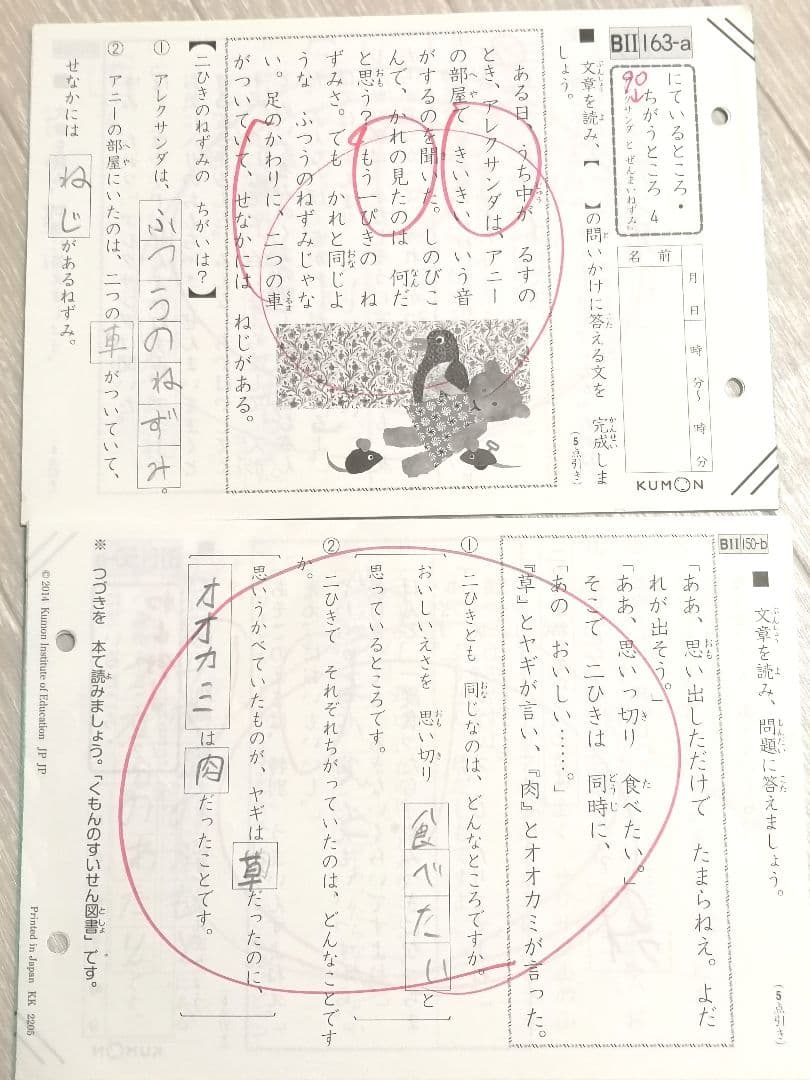 BⅡ 163-a
にているところ・
ちがうところ 4
90
ンダとぜんまいねずみ」
名前
月 日
時 分〜 時 分
KUMON
■ 文章を読み、【 】の問いかけに答える文を 完成しま
しょう。
(5点引き)
ある日、うち中が るすの
とき、アレクサンダは、アニー
の部屋で きいきい いう音
がするのを聞いた。しのびこ
んで、かれの見たのは 何だ
と思う?もう一ぴきの ね
ずみさ。でも かれと同じよ
うな ふつうのねずみじゃな
い。足のかわりに、二つの車
がついていて、せなかには ねじがある。
【二ひきのねずみの ちがいは?】
① アレクサンダは、ふつうのねずみ。
② アニーの部屋にいたのは、二つの車がついていて、
せなかには ねじがあるねずみ。
BⅡ 150-b
■ 文章を読み、問題に答えましょう。
(5点引き)
「ああ、思い出しただけで たまらねえ。よだ
れが出そう。」
「ああ、思いっ切り 食べたい。」
そこで 二ひきは 同時に、
「あの おいしい……。」
『草』とヤギが言い、『肉』とオオカミが言った。
① 二ひきとも 同じなのは、どんなところですか。
おいしいえさを 思い切り 食べたいと
思っているところです。
② 二ひきで それぞれちがっていたのは、どんなことです
か。
思いうかべていたものが、ヤギは草だったのに、
オオカミは肉だったことです。
※ つづきを 本で読みましょう。「くもんのすいせん図書」です。
© 2014 Kumon Institute of Education JP JP
Printed in Japan KK 2205